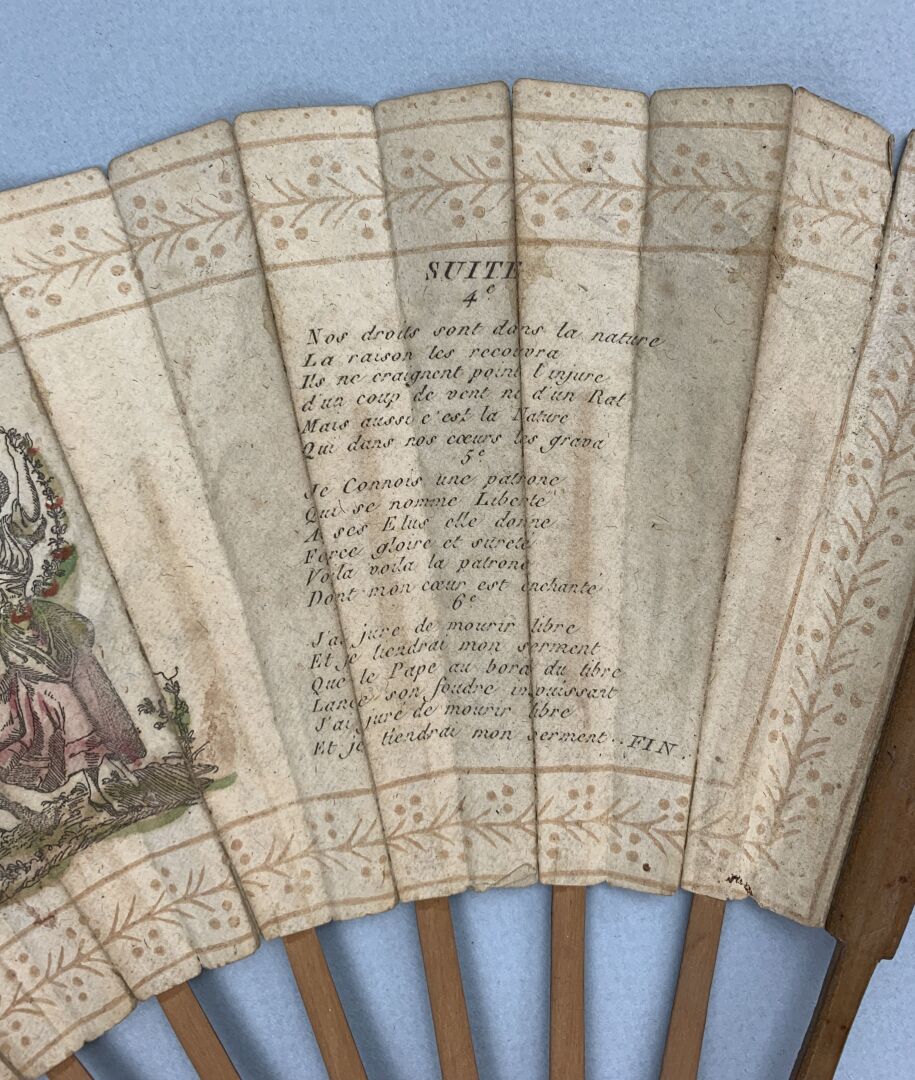 SUITE
4e
Nos droits sont dans la nature
La raison les recouvra
Ils ne craignent point l'injure
d'un coup de vent ni d'un Rat
Mais aussi c'est la Nature
Qui dans nos cœurs les grava
5e
Je Connois une patrone
Qui se nomme Liberté
A ses Elus elle donne
Force gloire et sureté
Voila voila la patrone
Dont mon cœur est enchanté
6e
J'ai juré de mourir libre
Et je tiendrai mon serment
Que le Pape au bord du tibre
Lance son foudre impuissant
J'ai juré de mourir libre
Et je tiendrai mon serment.. FIN